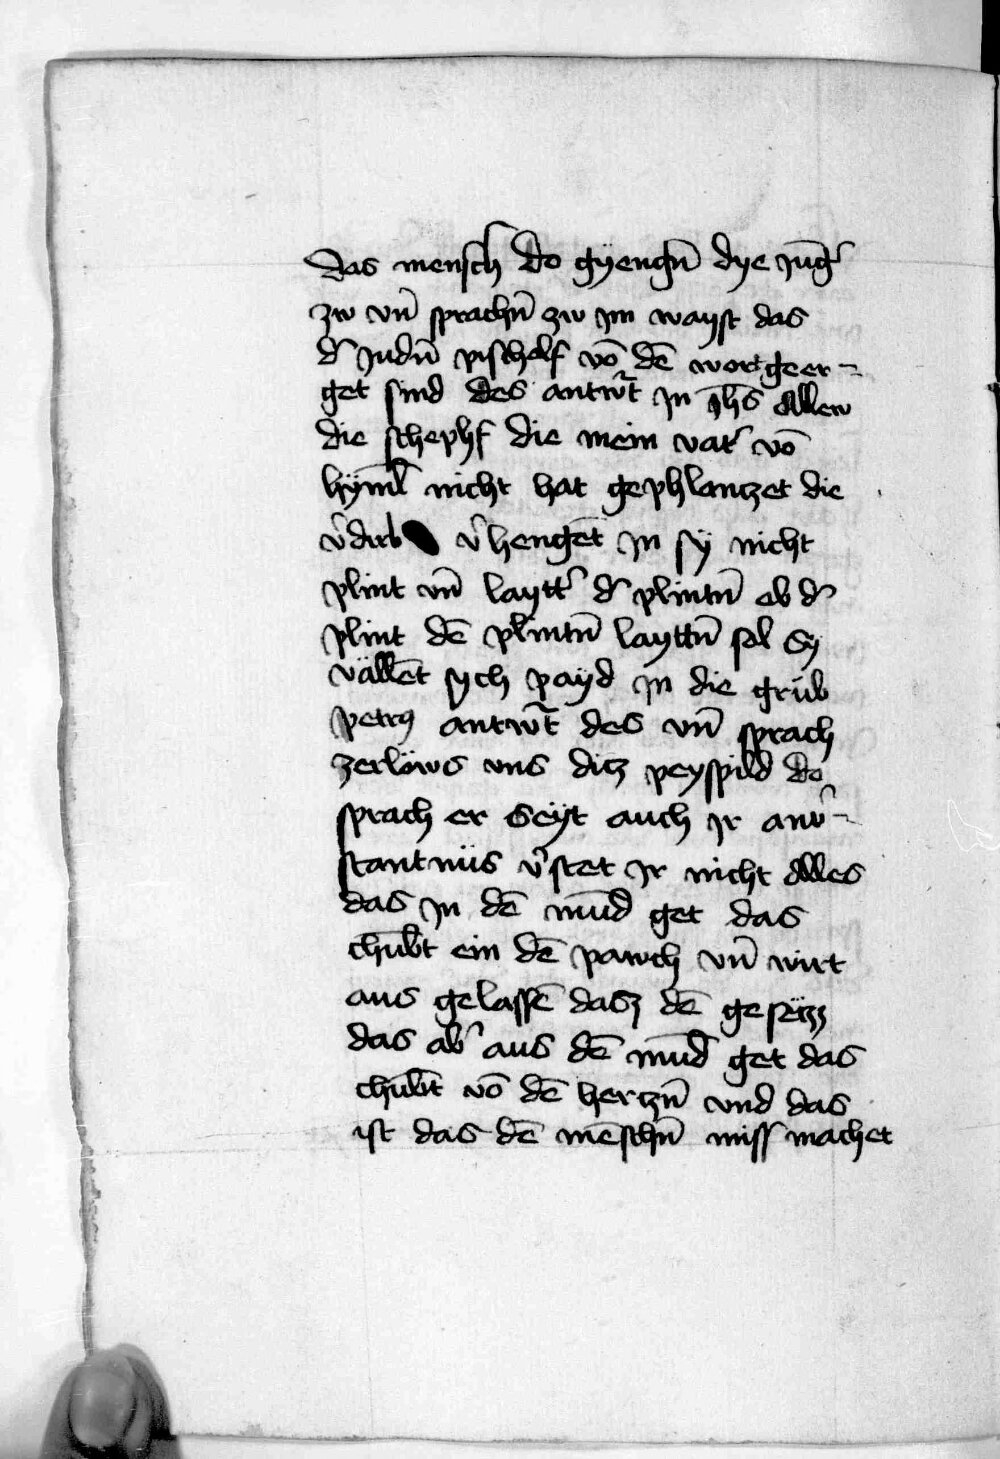 das mensch do gÿengn̄ dye Junḡ͛
zw vn̄ sprachn̄ zw Jm wayst das
d͛ Judn̄ pischolf vō dē wort geer¬
get sind des antwr̄t Jn Jh̄s Allew
die schephf die mein vat͛ vō
hÿml̄ nicht hat gephlantzet die
v͛dirb v͛hengēt Jn sÿ nicht
plint vn̄ laytt͛ d͛ plintn̄ ob d͛
plint dē plintn̄ layttn̄ sol Sy
vällēt sych payd Jn die grúb
petrꝰ antwr̄t des vn̄ sprach
zerlöws vns ditz peyspild do
sprach er Seÿt auch Jr anv͛¬
stantnüs v͛stet Jr nicht Alles
das Jn dē mūnd get das
chūbt ein dē pawch vn̄ wirt
aus gelassē dasz dē gesëtzz
das ab͛ aus dē mūnd get das
chūbt vō dē hertzn̄ vnd das
ist das dē mēschn̄ miss machet